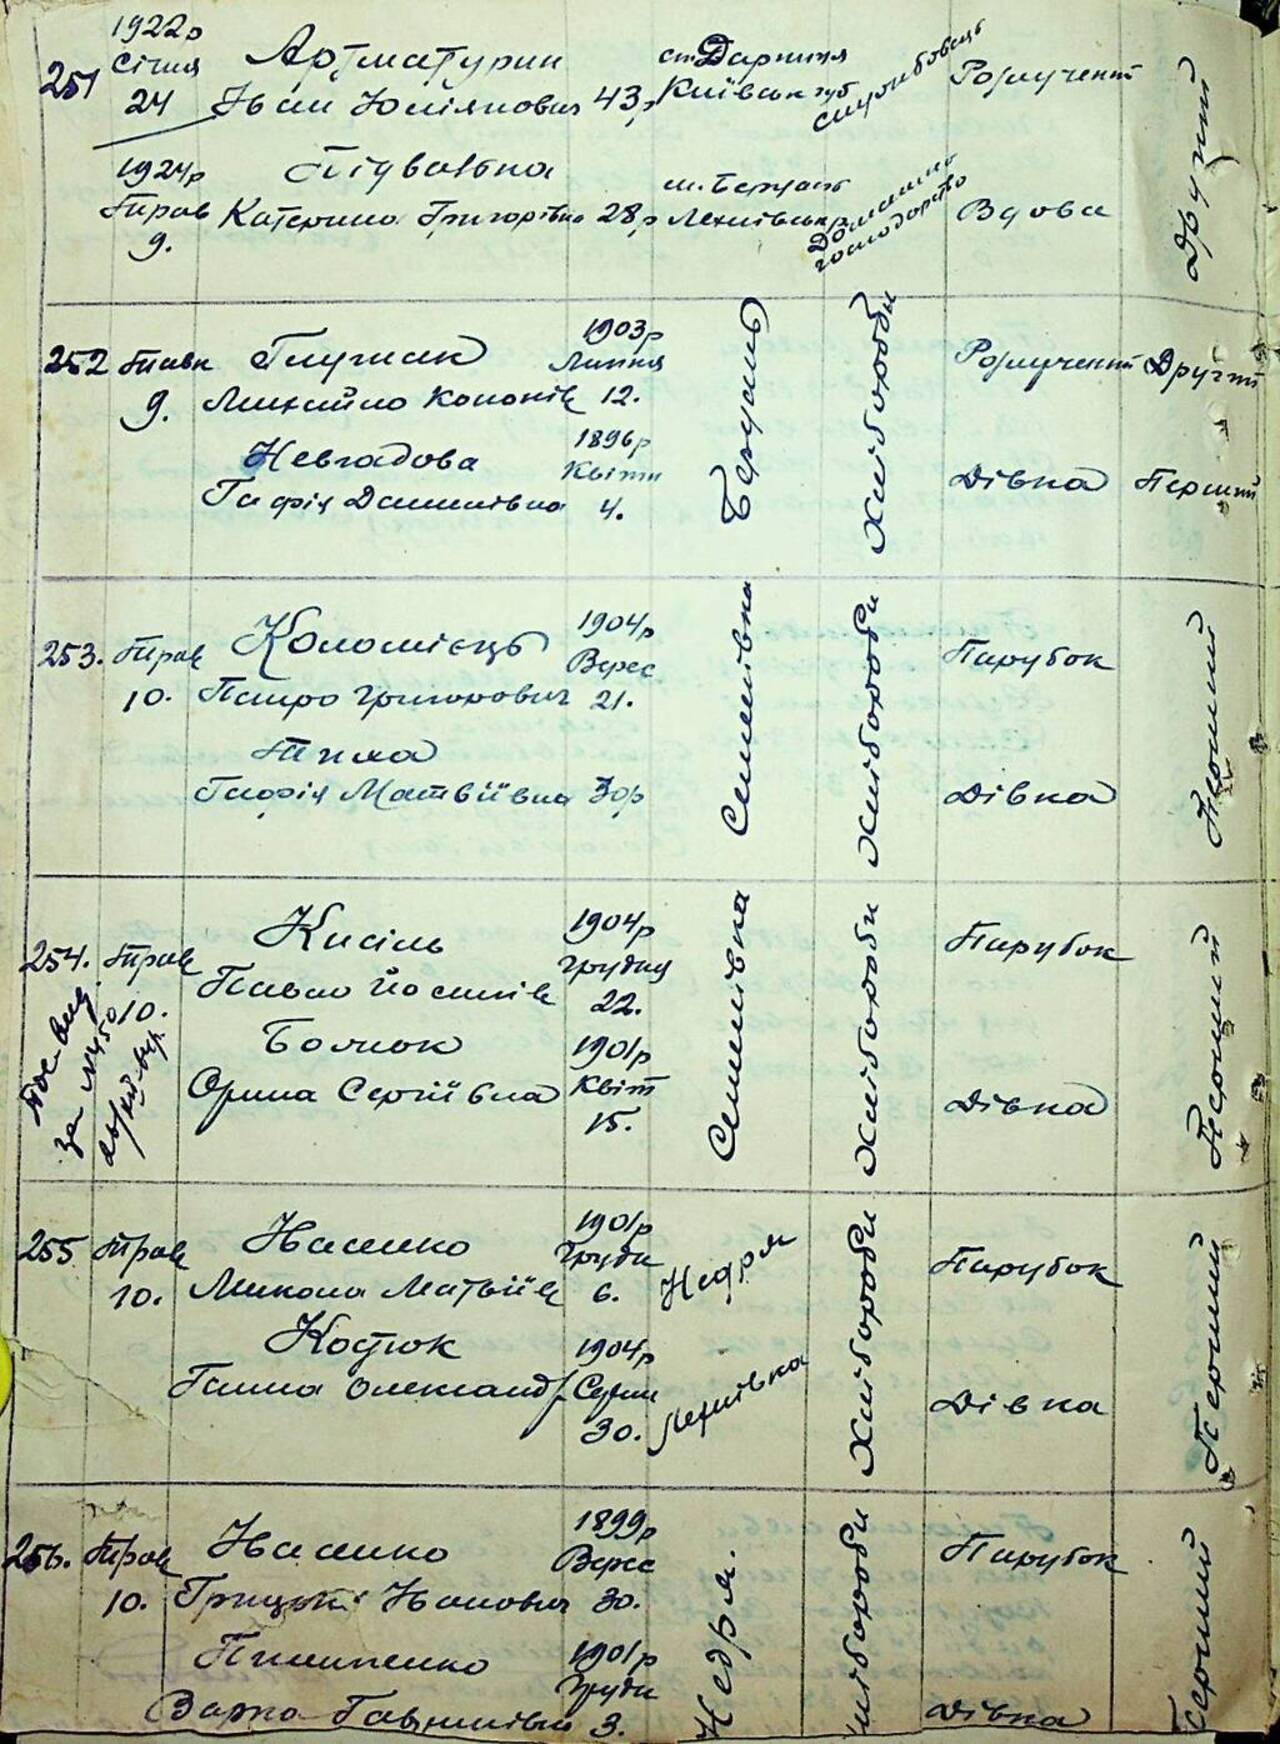 251
1922р
Січня
24
Артматурин
Іван Юліянович 43р
ст. Дарниця
Київськ губ
службовець
Розлучений
Другий
1924р
Трав
9.
Підвальна
Катерина Григорівна 28р
м. Березань
Домашнє
господарство
Вдова
252
9.
Глушак
Михайло Кононів
1903р
Липня
12.
Березань
Хлібороби
Розлучений
Другий
Невгадова
Гафія Данилівна
1896р
Квітн
4.
Дівка
Перший
253.
Трав
10.
Коломієць
Петро Григорович
1904р
Верес
21.
Семенівка
Хлібороби
Парубок
Перший
Гафія Матвіївна 30р
Дівка
254.
Трав
10.
Кисіль
Павло Йосипів
1904р
Грудня
22.
Семенівка
Хлібороби
Парубок
Перший
Орина Сергіївна
1901р
Квіт
15.
Дівка
255
Трав
10.
Микола Матвіїв
1901р
Грудн
6.
Недря
Хлібороби
Парубок
Перший
Ганна Олександр
1904р
Серпн
30.
Лехнівка
Дівка
256.
Трав
10.
Грицько Іванович
1899р
Верес
30.
Недря.
Хлібороби
Парубок
Перший
Пилипенко
Варка Гаврилівна
1901р
Грудн
3.
Дівка